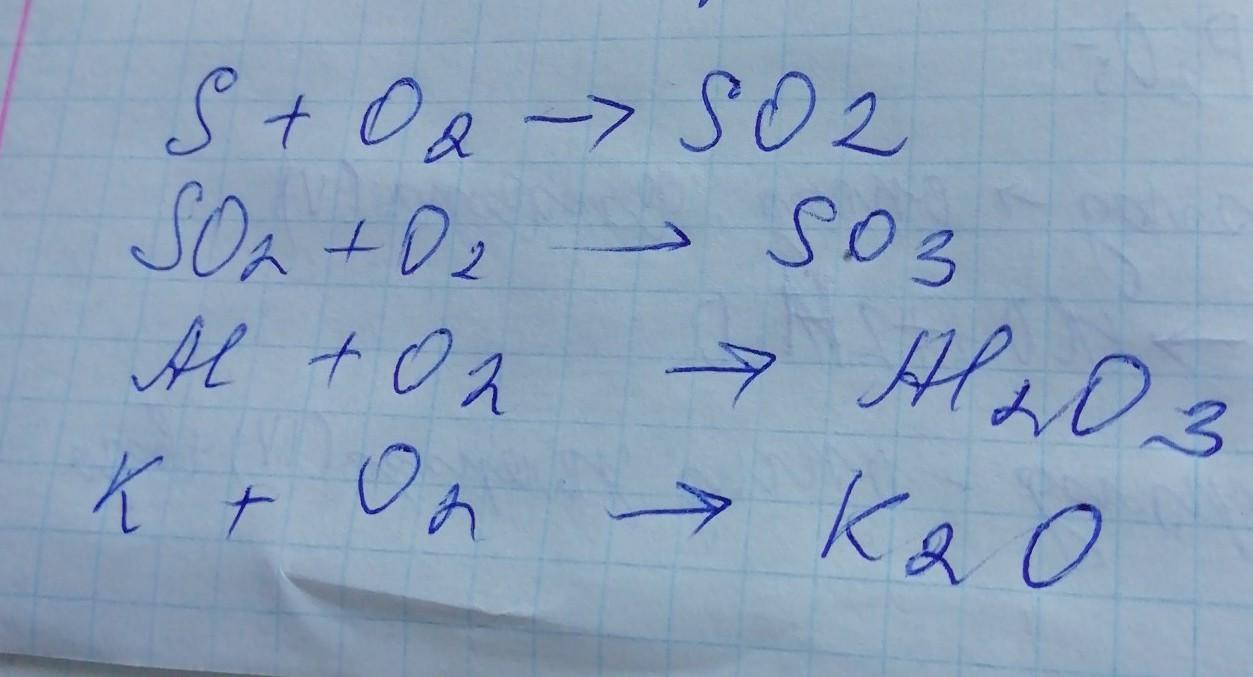 S + O₂ → SO2
SO₂ + O₂ → SO₃
Al + O₂ → Al₂O₃
K + O₂ → K₂O